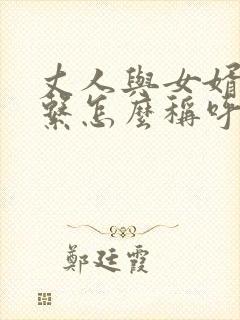 丈人與女婿
繫怎麼稱呼
鄭廷霞